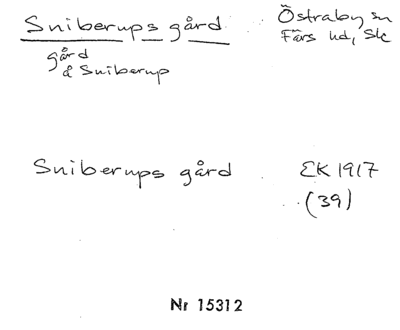 Sniberups gård
Östraby sn
Färs hd, Sk
gård
å Sniberup
Sniberups gård
EK 1917
(39)
Nr 15312